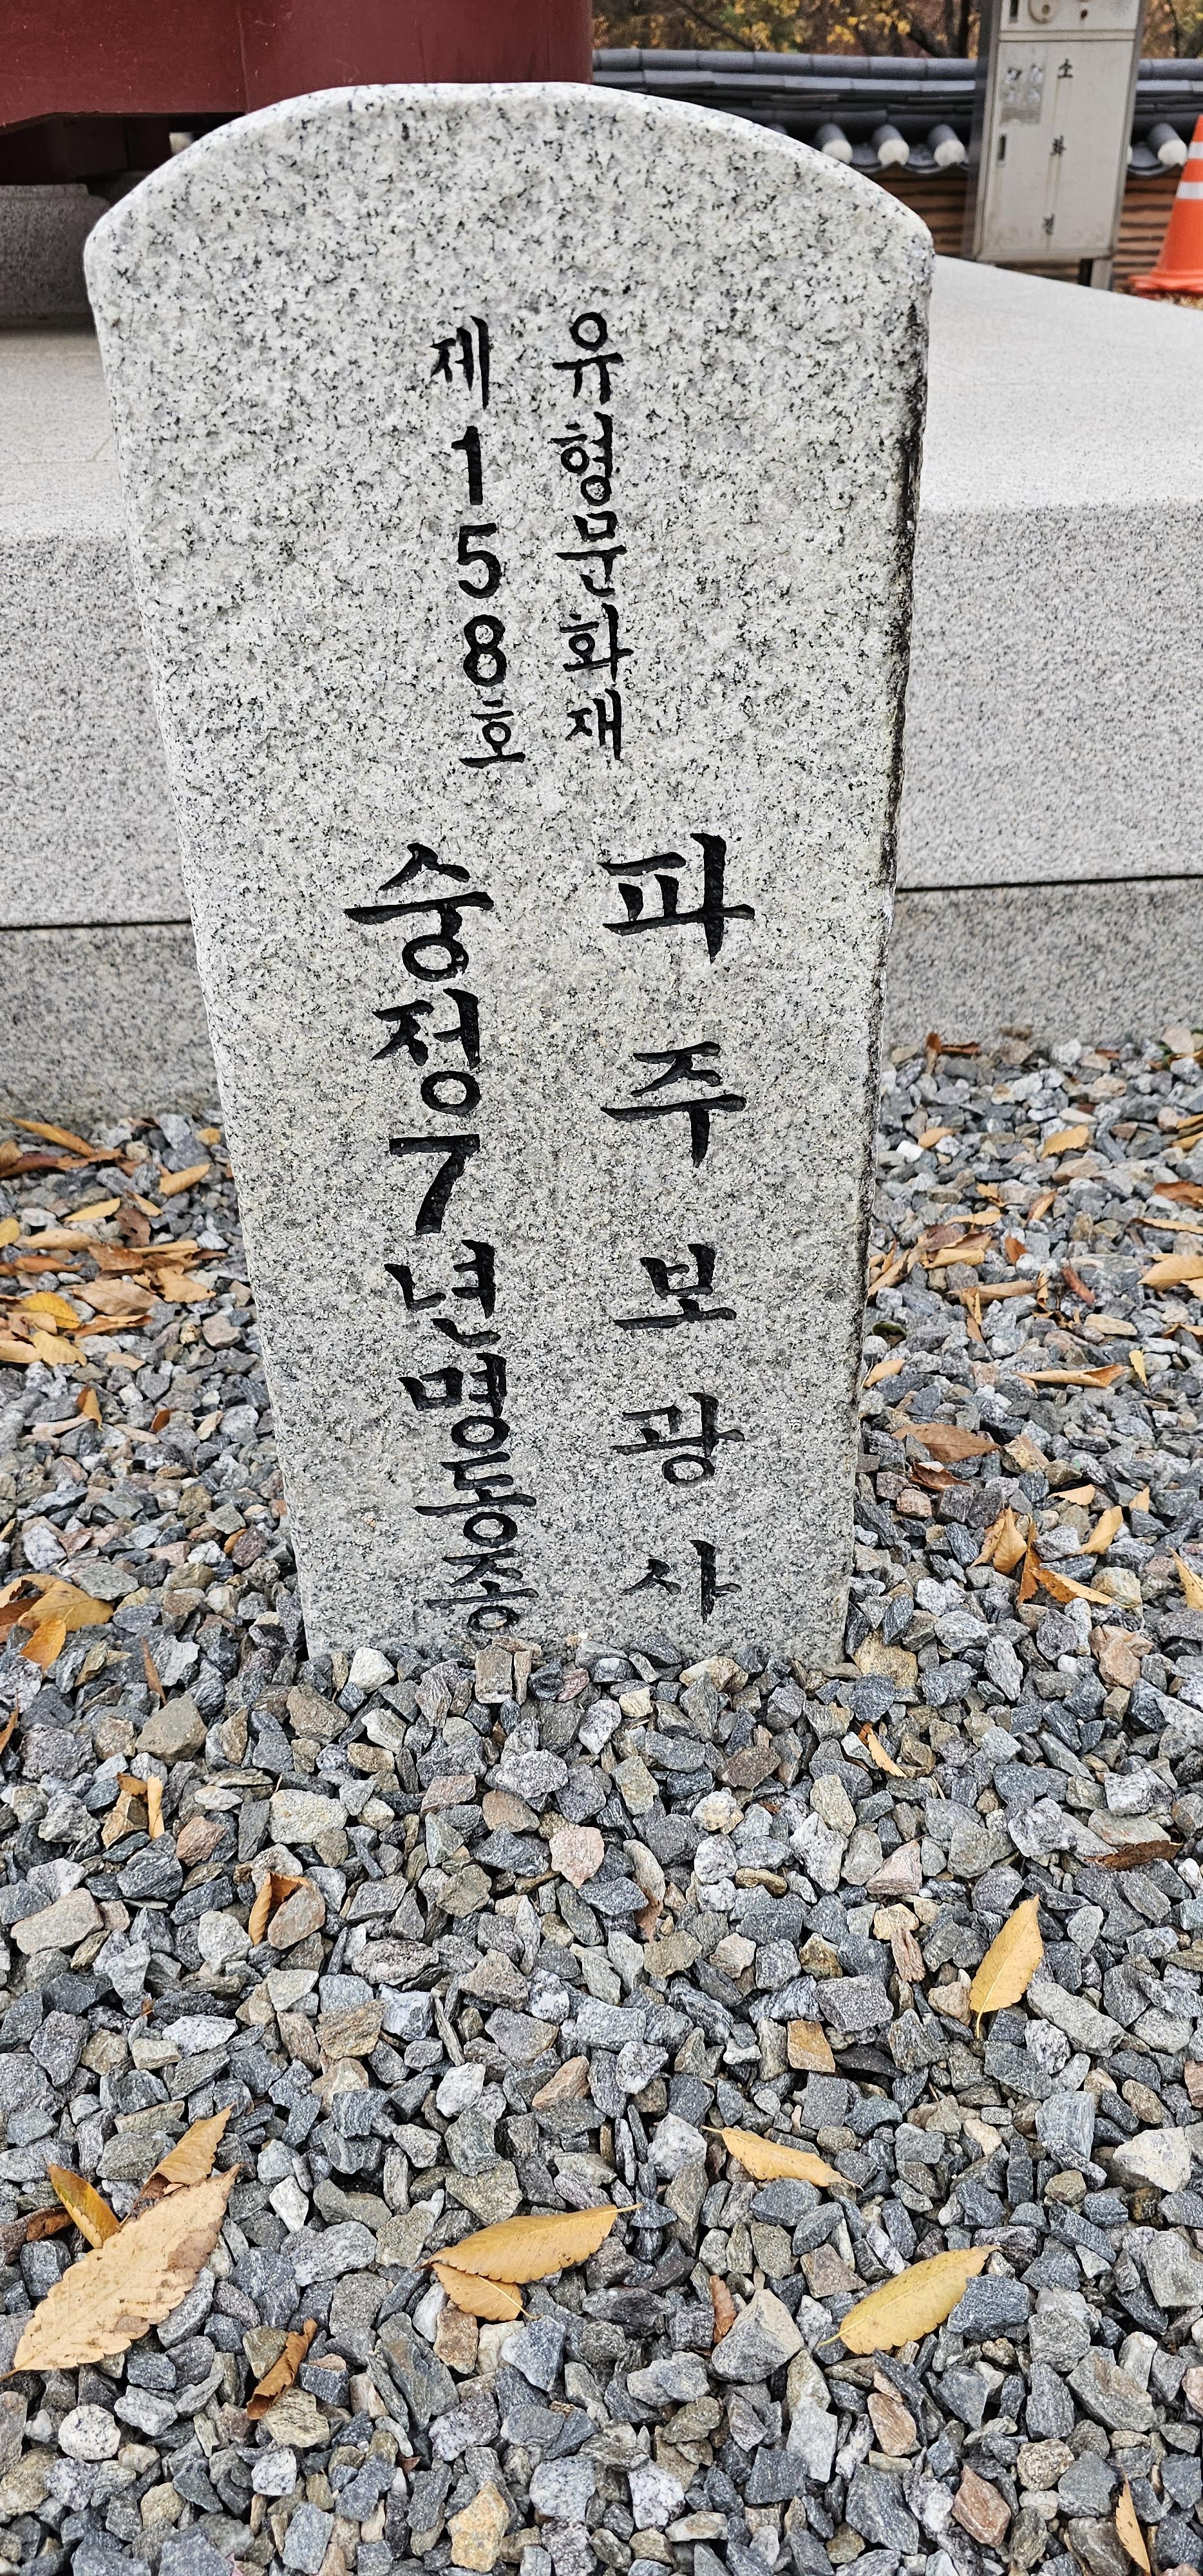 유형문화재
제158호
파주보광사
숭정7년명동종
소화전